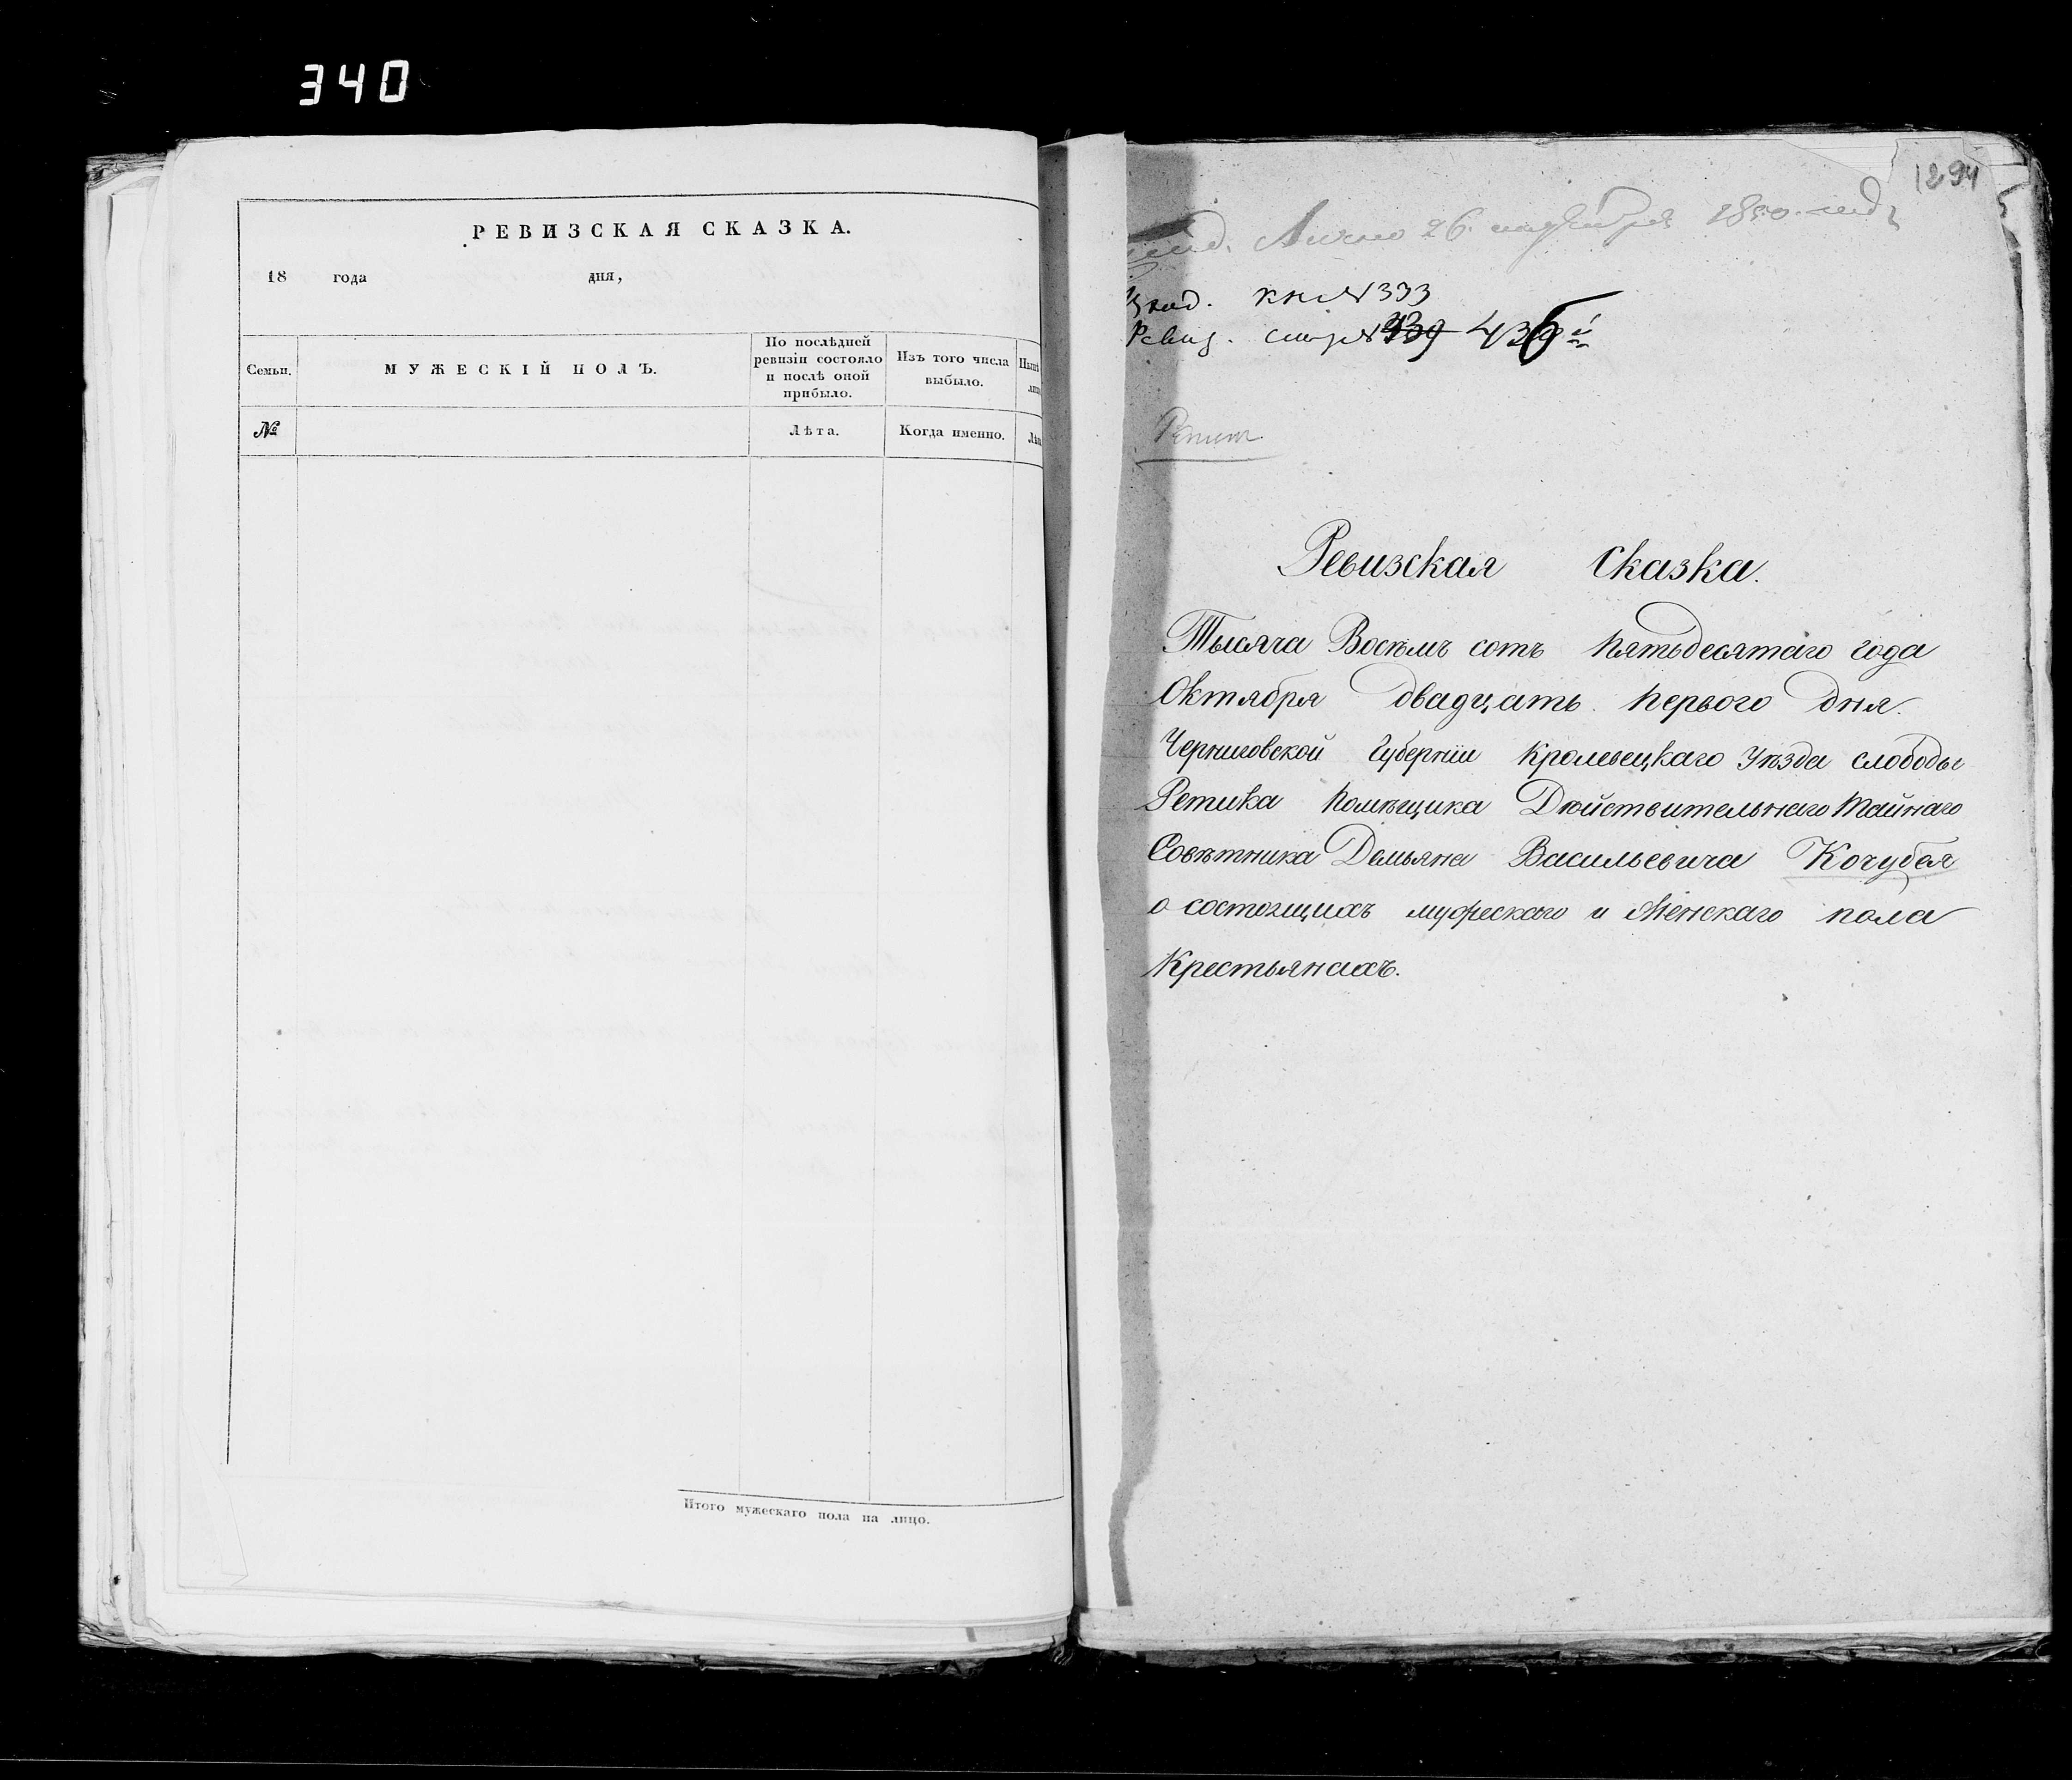 340
РЕВИЗСКАЯ СКАЗКА.
18 года дня,
Семьи.
МУЖЕСКІЙ ПОЛЪ.
По послѣдней
ревизіи состояло
и послѣ оной
прибыло.
Изъ того числа
выбыло.
№
Лѣта.
Когда именно.
Итого мужескаго пола на лицо.
1294
Лично 26. 1850.
вход. кн № 333
Ревиз.
Ревизская Сказка.
Тысяча Восѣмъ сотъ пятьдесятаго года
Октября двадцать перваго дня.
Черниговской Губерніи Кролевецкаго Уѣзда слободы
Ретика Помѣщика Дѣйствительнаго Тайнаго
Совѣтника Демьяна Васильевича Кочубея
о состоящихъ мужескаго и Женскаго пола
Крестьянахъ.